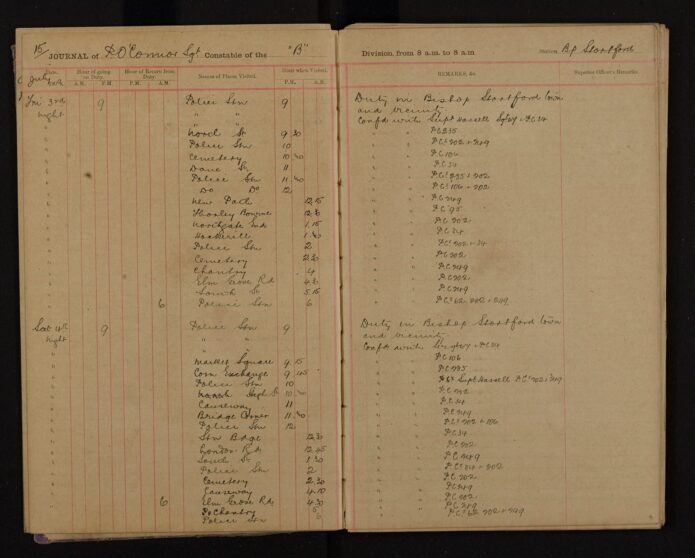 15 JOURNAL of P O'Connor Sgt Constable of the "B" Division, from 8 a.m. to 8 a.m Station, Bp Stortford
Date. Hour of going on Duty. Hour of Return from Duty. Names of Places Visited. Hour when Visited. REMARKS, &c. Superior Officer's Remarks.
July A.M. P.M. P.M. A.M. P.M. A.M.
Fri 3rd 9 Police Stn 9 Duty in Bishop Stortford town
night " " and vicinity
Confd with Supt Hassell
North St 9 30 PC 235
Police Stn 10 PCs 202 + 249
Cemetery 10 30 PC 106
Dane St 11 PC 34
Police Stn 11 30 PCs 235 + 202
Do Do 12 PCs 106 + 202
New Path 12 15 PC 249
Thorley Bourne 12 30 PC 95
Northgate End 1 15 PC 202
Hockerill 1 30 PC 34
Police Stn 2 PCs 202 + 34
Cemetery 2 30 PC 202
Chantry 4 PC 249
Elm Grove Rd 4 30 PC 202
South St 5 15 PC 249
6 Police Stn 6 PCs 62 202 + 249
Sat 4th 9 Police Stn 9 Duty in Bishop Stortford town
night " " and vicinity
Confd with
Market Square 9 15 PC 106
Corn Exchange 9 45 PC 235
Police Stn 10 Supt Hassell PCs 202 + 249
10 30 PC 202
Causeway 11 PC 34
Bridge Corner 11 30 PC 249
Police Stn 12 PCs 202 + 106
Stn Bdge 12 30 PC 34
London Rd 12 45 PC 202
South St 1 30 PC 249
Police Stn 2 PCs 34 + 202
Cemetery 2 30 PC 249
Causeway 4 10 PC 202
6 Elm Grove Rd 4 30 PC 249
Chantry 5
Police Stn 6 PCs 62 202 + 249